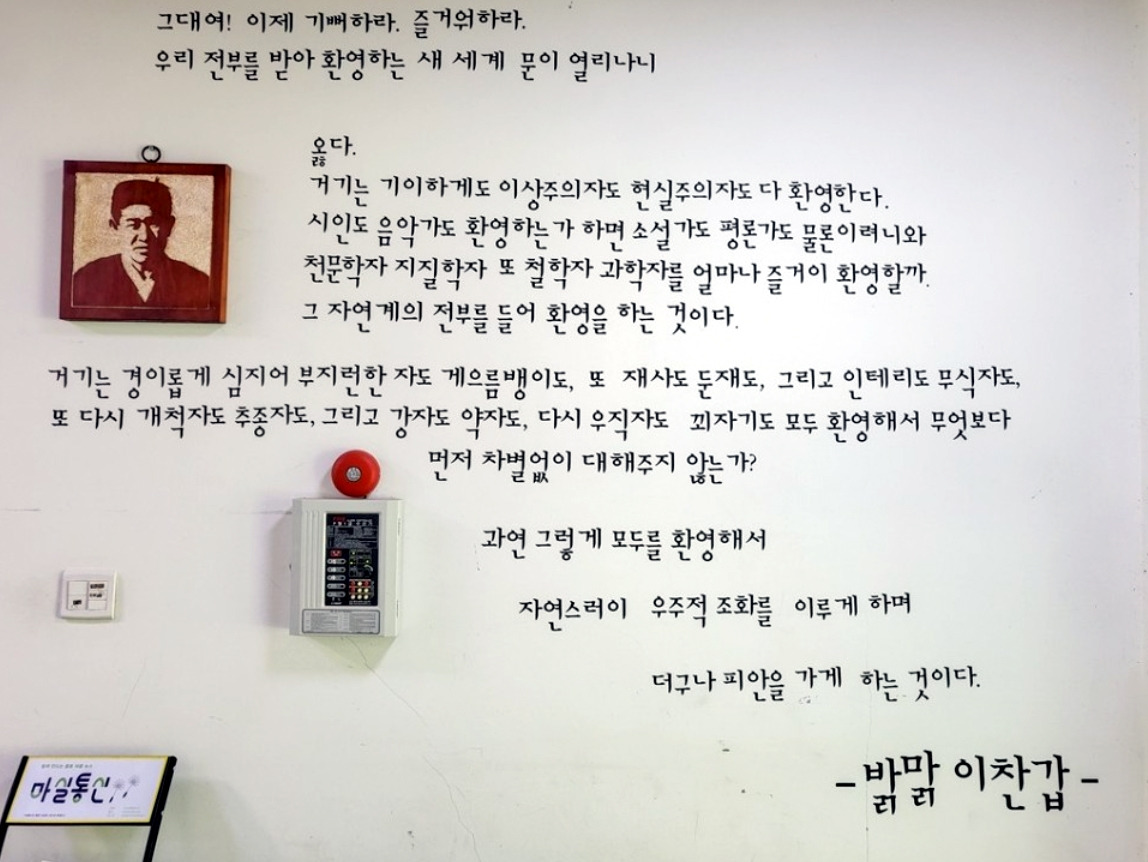 그대여! 이제 기뻐하라. 즐거워하라.
우리 전부를 받아 환영하는 새 세계 문이 열리나니
옳다.
거기는 기이하게도 이상주의자도 현실주의자도 다 환영한다.
시인도 음악가도 환영하는가 하면 소설가도 평론가도 물론이려니와
천문학자 지질학자 또 철학자 과학자를 얼마나 즐거이 환영할까.
그 자연계의 전부를 들어 환영을 하는 것이다.
거기는 경이롭게 심지어 부지런한 자도 게으름뱅이도, 또 재사도 둔재도, 그리고 인테리도 무식자도,
또 다시 개척자도 추종자도, 그리고 강자도 약자도, 다시 우직자도 꾀자기도 모두 환영해서 무엇보다
먼저 차별없이 대해주지 않는가?
과연 그렇게 모두를 환영해서
자연스러이 우주적 조화를 이루게 하며
더구나 피안을 가게 하는 것이다.
- 밝맑 이찬갑 -
마실통신